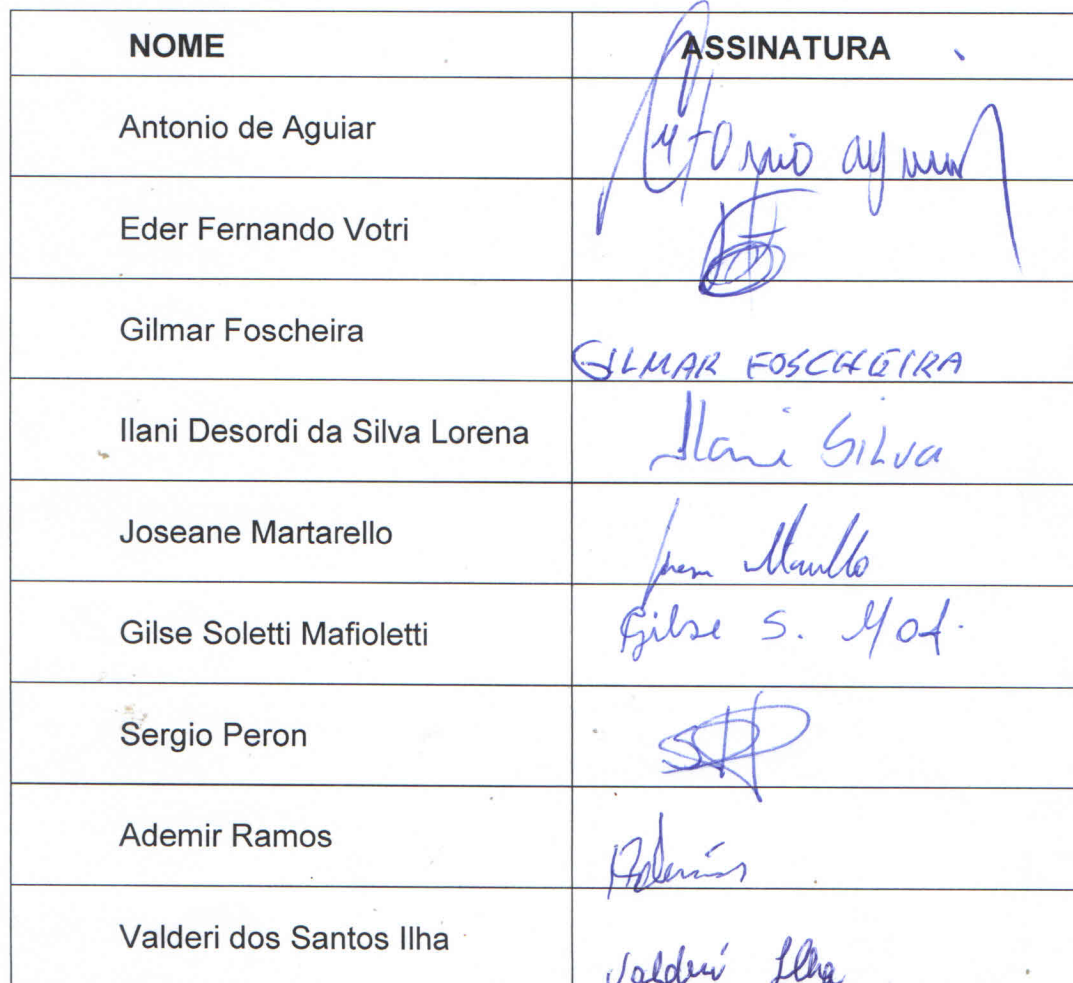 NOME ASSINATURA
Antonio de Aguiar Antonio
Eder Fernando Votri
Gilmar Foscheira GILMAR FOSCHEIRA
Ilani Desordi da Silva Lorena Ilani Silva
Joseane Martarello
Gilse Soletti Mafioletti Gilse S. Maf.
Sergio Peron
Ademir Ramos
Valderi dos Santos Ilha Valderi Ilha